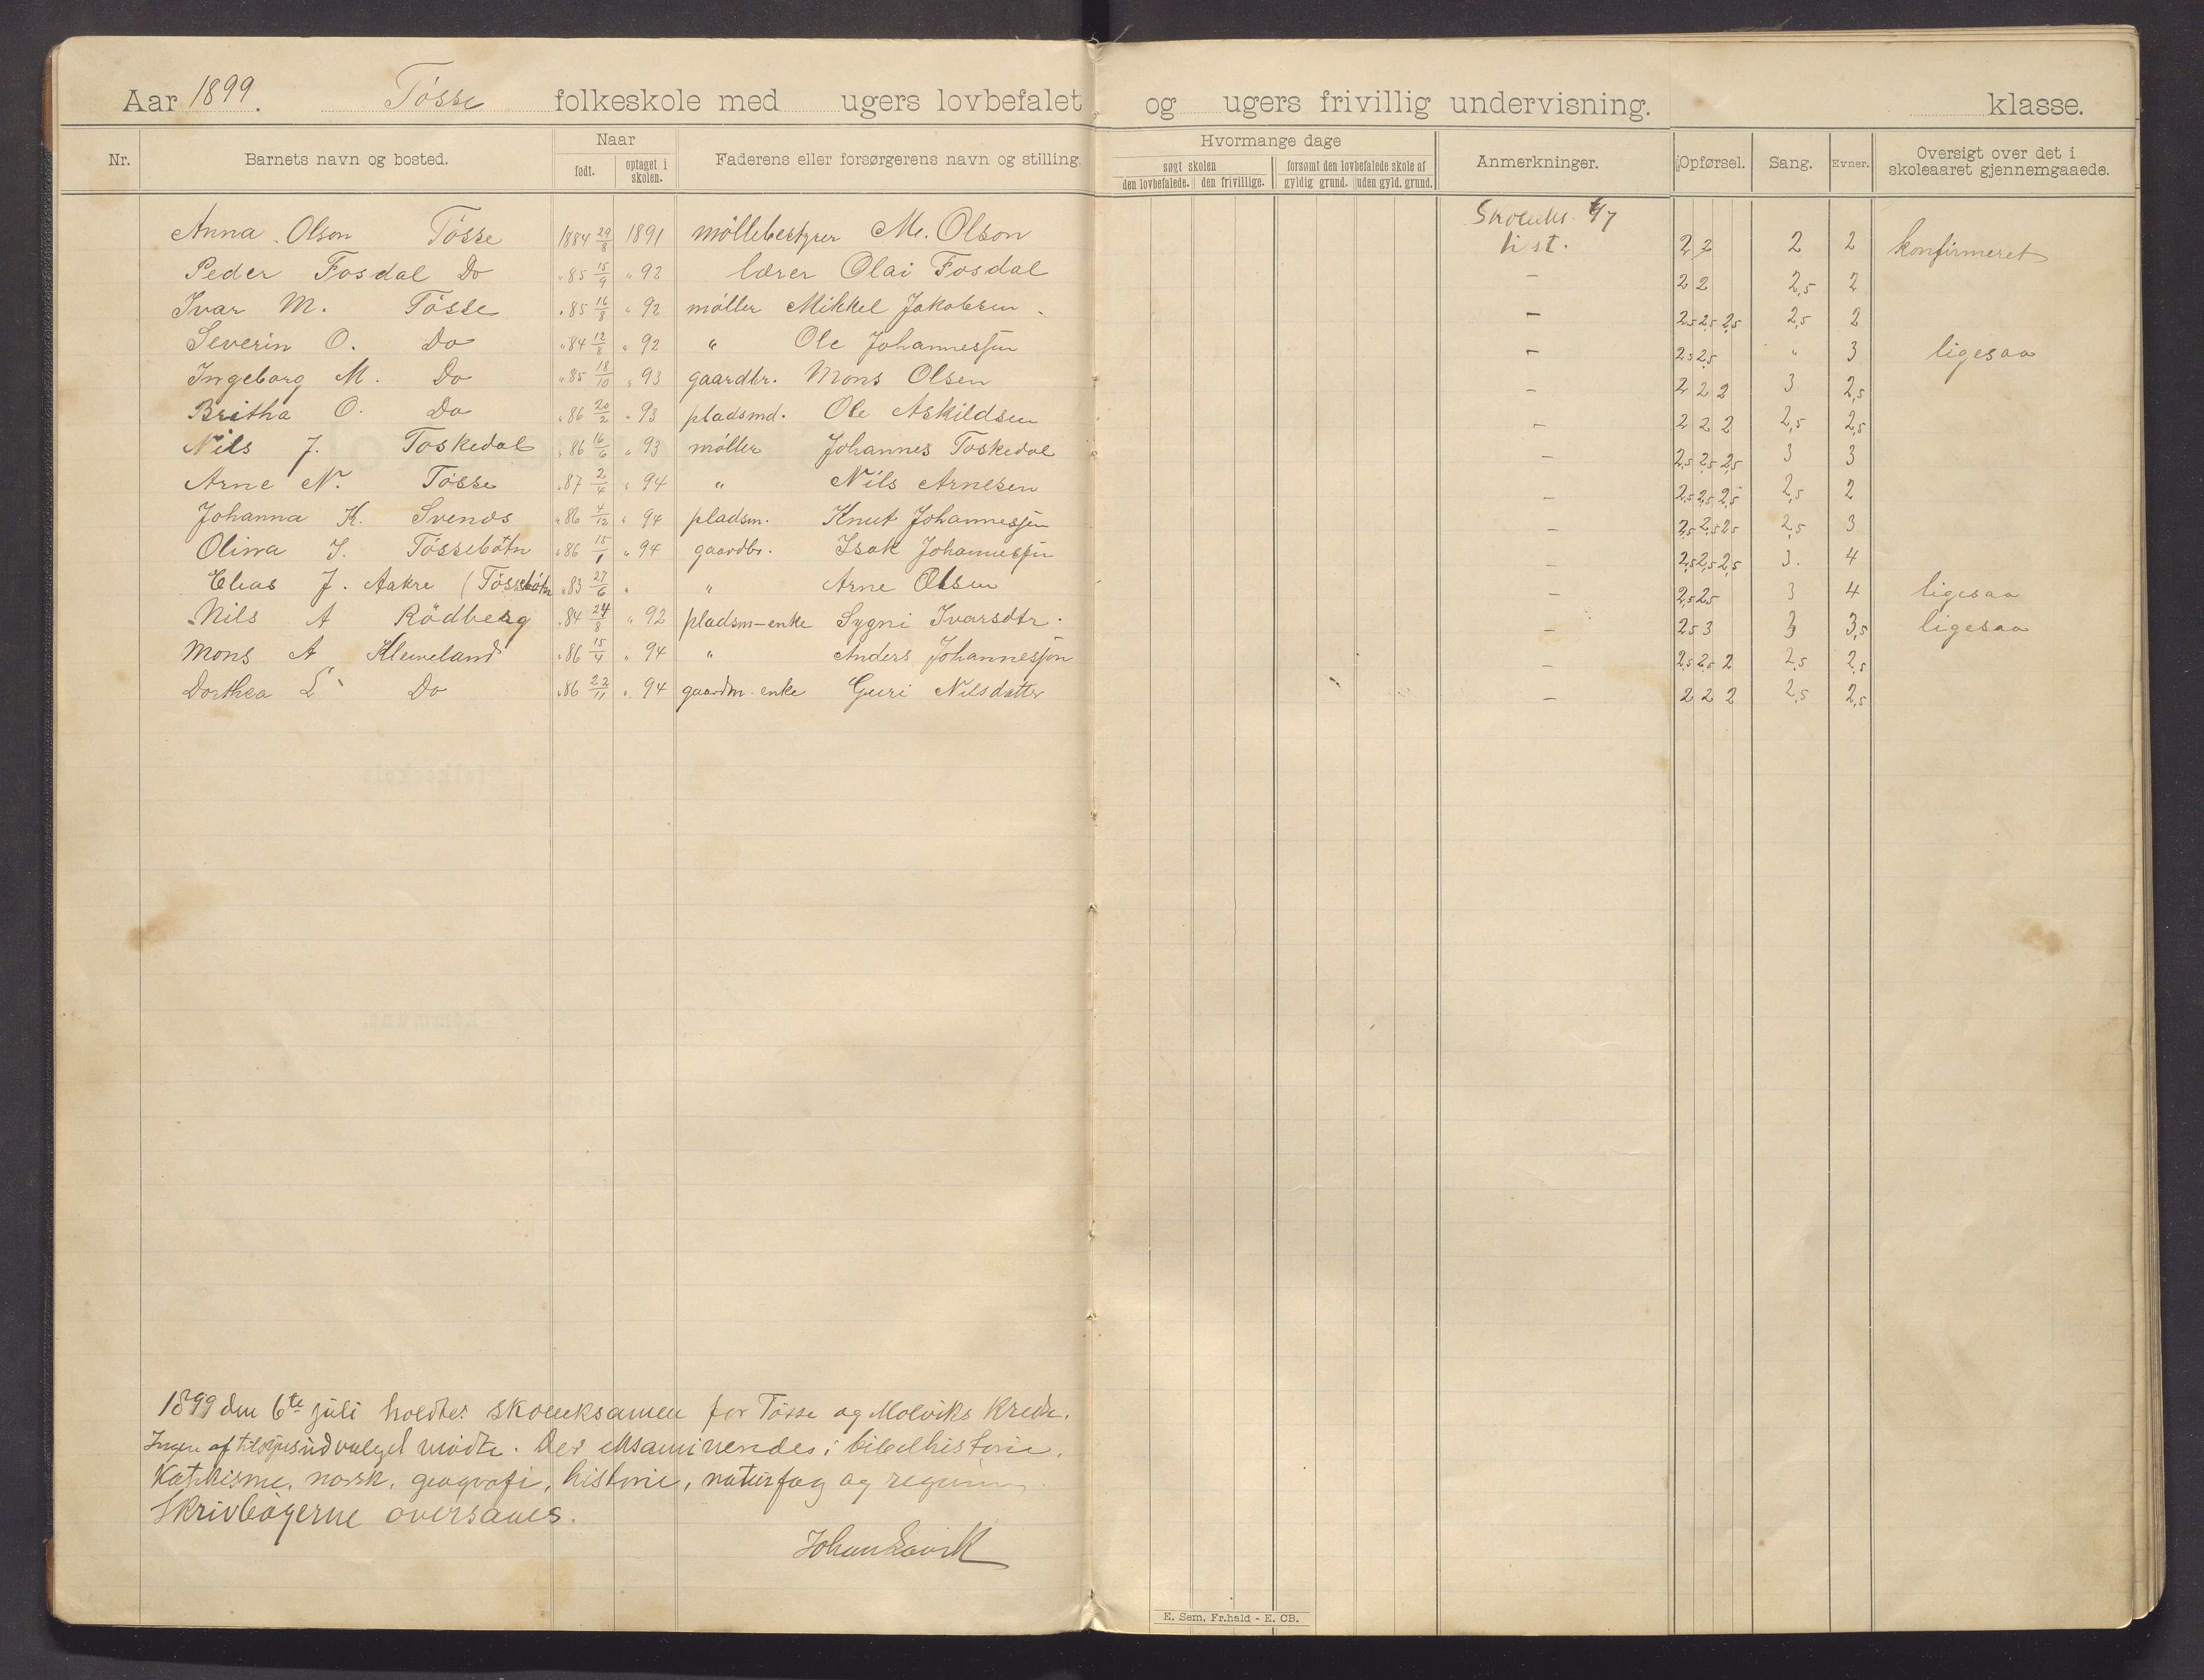 Aar 1899. Tösse folkeskole med ugers lovbefalet og ugers frivillig undervisning. klasse.
Nr. Barnets navn og bosted. Naar født. optaget i skolen. Faderens eller forsørgerens navn og stilling. Hvormange dage søgt skolen den lovbefalede. den frivillige. forsømt den lovbefalede skole af gyldig grund. uden gyld. grund. Anmerkninger. Opførsel. Sang. Evner. Oversigt over det i skoleaaret gjennemgaaede.
Anna Olson Tösse 1884 29/8 1891 möllebestyrer M. Olson 2 2 2 2 konfirmeret
Peder Fosdal Do " 85 15/9 " 92 lærer Olai Fosdal – 2 2 2,5 2
Ivar M. Tösse " 85 16/8 " 92 möller Mikkel Jakobsen – 2,5 2,5 2,5 2,5 2
Severin O. Do " 84 12/8 " 92 " Ole Johannessen – 2,5 2,5 " 3 ligesaa
Ingeborg M. Do " 85 18/10 " 93 gaardbr. Mons Olsen – 2 2 2 3 2,5
Britha O. Do " 86 20/2 " 93 pladsmd. Ole Askildsen – 2 2 2 2,5 2,5
Nils J. Toskedal " 86 16/6 " 93 möller Johannes Toskedal – 2,5 2,5 2,5 3 3
Arne N. Tösse " 87 2/4 " 94 " Nils Arnesen – 2,5 2,5 2,5 2,5 2
Johanna K. Svends " 86 4/12 " 94 pladsm. Knut Johannessen – 2,5 2,5 2,5 2,5 3
Olina I. Tössebötn " 86 15/1 " 94 gaardbr. Isak Johannessen – 2,5 2,5 2,5 3. 4
Elias J. Aakre (Tössebötn " 83 27/6 " " Arne Olsen – 2,5 2,5 3 4 ligesaa
Nils A Rödberg " 84 24/8 " 92 pladsm-enke Sygni Ivarsdtr. – 2,5 3 3 3,5 ligesaa
Mons A Kleiveland " 86 15/4 " 94 " Anders Johannesson – 2,5 2,5 2 2,5 2,5
Dorthea L Do " 86 22/11 " 94 gaardm. enke Guri Nilsdatter – 2 2 2 2,5 2,5
1899 den 6te juli holdtes skoleeksamen for Tösse og Molviks kreds.
Ingen af tilsynsudvalget mödte. Der eksaminerdes i bibelhistorie,
Katekisme, norsk, geografi, historie, naturfag og regning.
Skrivbögerne oversaaes.
Johan Lavik
E. Sem, Fr.hald - E. CB.